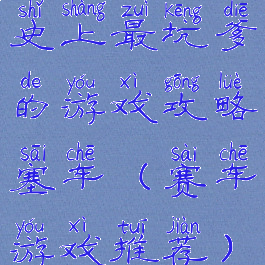 shǐ shàng zuì kēng diē
史上最坑爹
de yóu xì gōng lüè
的游戏攻略
sāi chē sài chē
塞车（赛车
yóu xì tuī jiàn
游戏推荐）